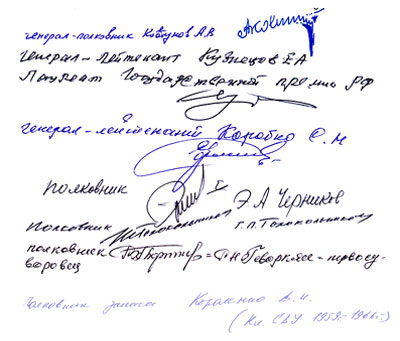 генерал-полковник Ковтунов А.В
генерал-лейтенант Кузнецов Е А
Лауреат Государственной премии РФ
генерал-лейтенант Коробко С. Н
полковник Э.А Черников
Полковник Г.П.
полковник = Г.Н Геворкян - первосу-
воровец
Полковник запаса В. И.
(Кл. СВУ 1959г.-1966г.)